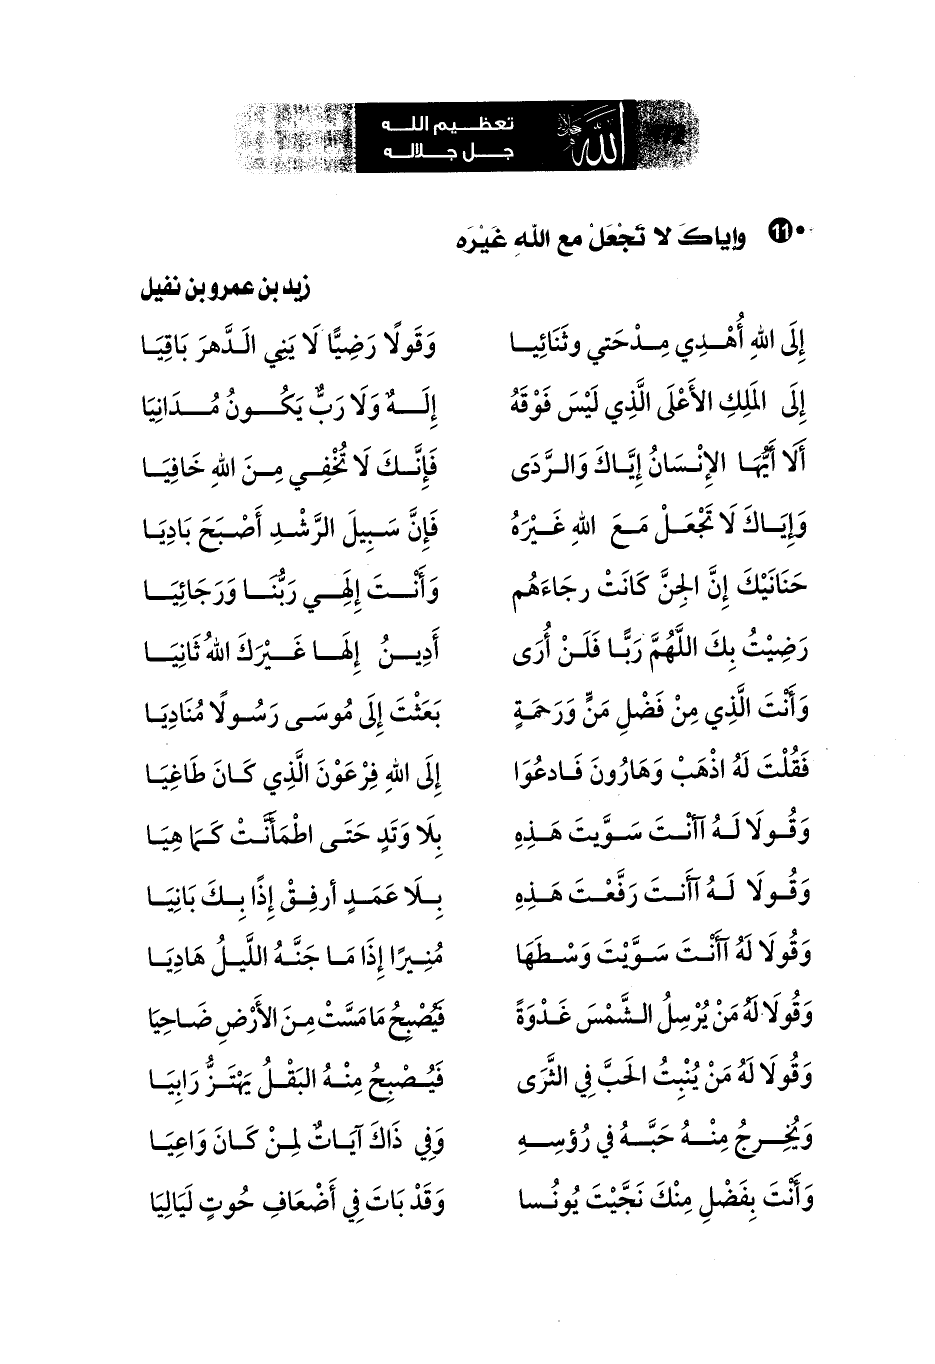 تعظيم الله
جل جلاله
الله جل جلاله
11 وإياك لا تَجْعَلْ مع اللهِ غَيْرَه
زيد بن عمرو بن نفيل
إِلَى اللهِ أُهْدِي مِدْحَتي وثَنَائِيا وَقَولًا رَضِيًّا لَا يَنِي الدَّهرَ بَاقِيَا
إِلَى المَلِكِ الأَعْلَى الَّذِي لَيْسَ فَوْقَهُ إِلَهٌ وَلَا رَبٌّ يَكُونُ مُدَانِيَا
أَلَا أَيُّهَا الإِنْسَانُ إِيَّاكَ وَالرَّدَى فَإِنَّكَ لَا تُخْفِي مِنَ اللهِ خَافِيَا
وَإِيَاكَ لَا تَجْعَلْ مَعَ اللهِ غَيْرَهُ فَإِنَّ سَبِيلَ الرَّشْدِ أَصْبَحَ بَادِيَا
حَنَانَيْكَ إِنَّ الجِنَّ كَانَتْ رجاءَهُم وَأَنْتَ إِلَهِي رَبُّنَا وَرَجَائِيَا
رَضِيْتُ بِكَ اللَّهُمَّ رَبًّا فَلَنْ أُرَى أَدِينُ إِلَهًا غَيْرَكَ اللهُ ثَانِيَا
وَأَنْتَ الَّذِي مِنْ فَضْلِ مَنٍّ وَرَحْمَةٍ بَعَثْتَ إِلَى مُوسَى رَسُولًا مُنَادِيَا
فَقُلْتَ لَهُ اذْهَبْ وَهَارُونَ فَادعُوَا إِلَى اللهِ فِرْعَوْنَ الَّذِي كَانَ طَاغِيَا
وَقُولَا لَهُ آأَنْتَ سَوَّيتَ هَذِهِ بِلَا وَتَدٍ حَتَى اطْمَأَنَّتْ كَمَا هِيَا
وَقُولَا لَهُ آأَنتَ رَفَّعْتَ هَذِهِ بِلَا عَمَدٍ أرفِقْ إِذًا بِكَ بَانِيَا
وَقُولَا لَهُ آأَنْتَ سَوَّيْتَ وَسْطَهَا مُنِيرًا إِذَا مَا جَنَّهُ اللَّيلُ هَادِيَا
وَقُولَا لَهُ مَنْ يُرْسِلُ الشَّمْسَ غَدْوَةً فَيُصْبِحُ مَا مَسَّتْ مِنَ الأَرْضِ ضَاحِيَا
وَقُولَا لَهُ مَنْ يُنْبِتُ الحَبَّ فِي الثَّرَى فَيُصْبِحُ مِنْهُ البَقْلُ يَهْتَزُّ رَابِيَا
وَيُخْرِجُ مِنْهُ حَبَّهُ فِي رُؤسِهِ وَفِي ذَاكَ آيَاتٌ لِمَنْ كَانَ وَاعِيَا
وَأَنْتَ بِفَضْلٍ مِنْكَ نَجَّيْتَ يُونُسا وَقَدْ بَاتَ فِي أَضْعَافِ حُوتٍ لَيَالِيَا